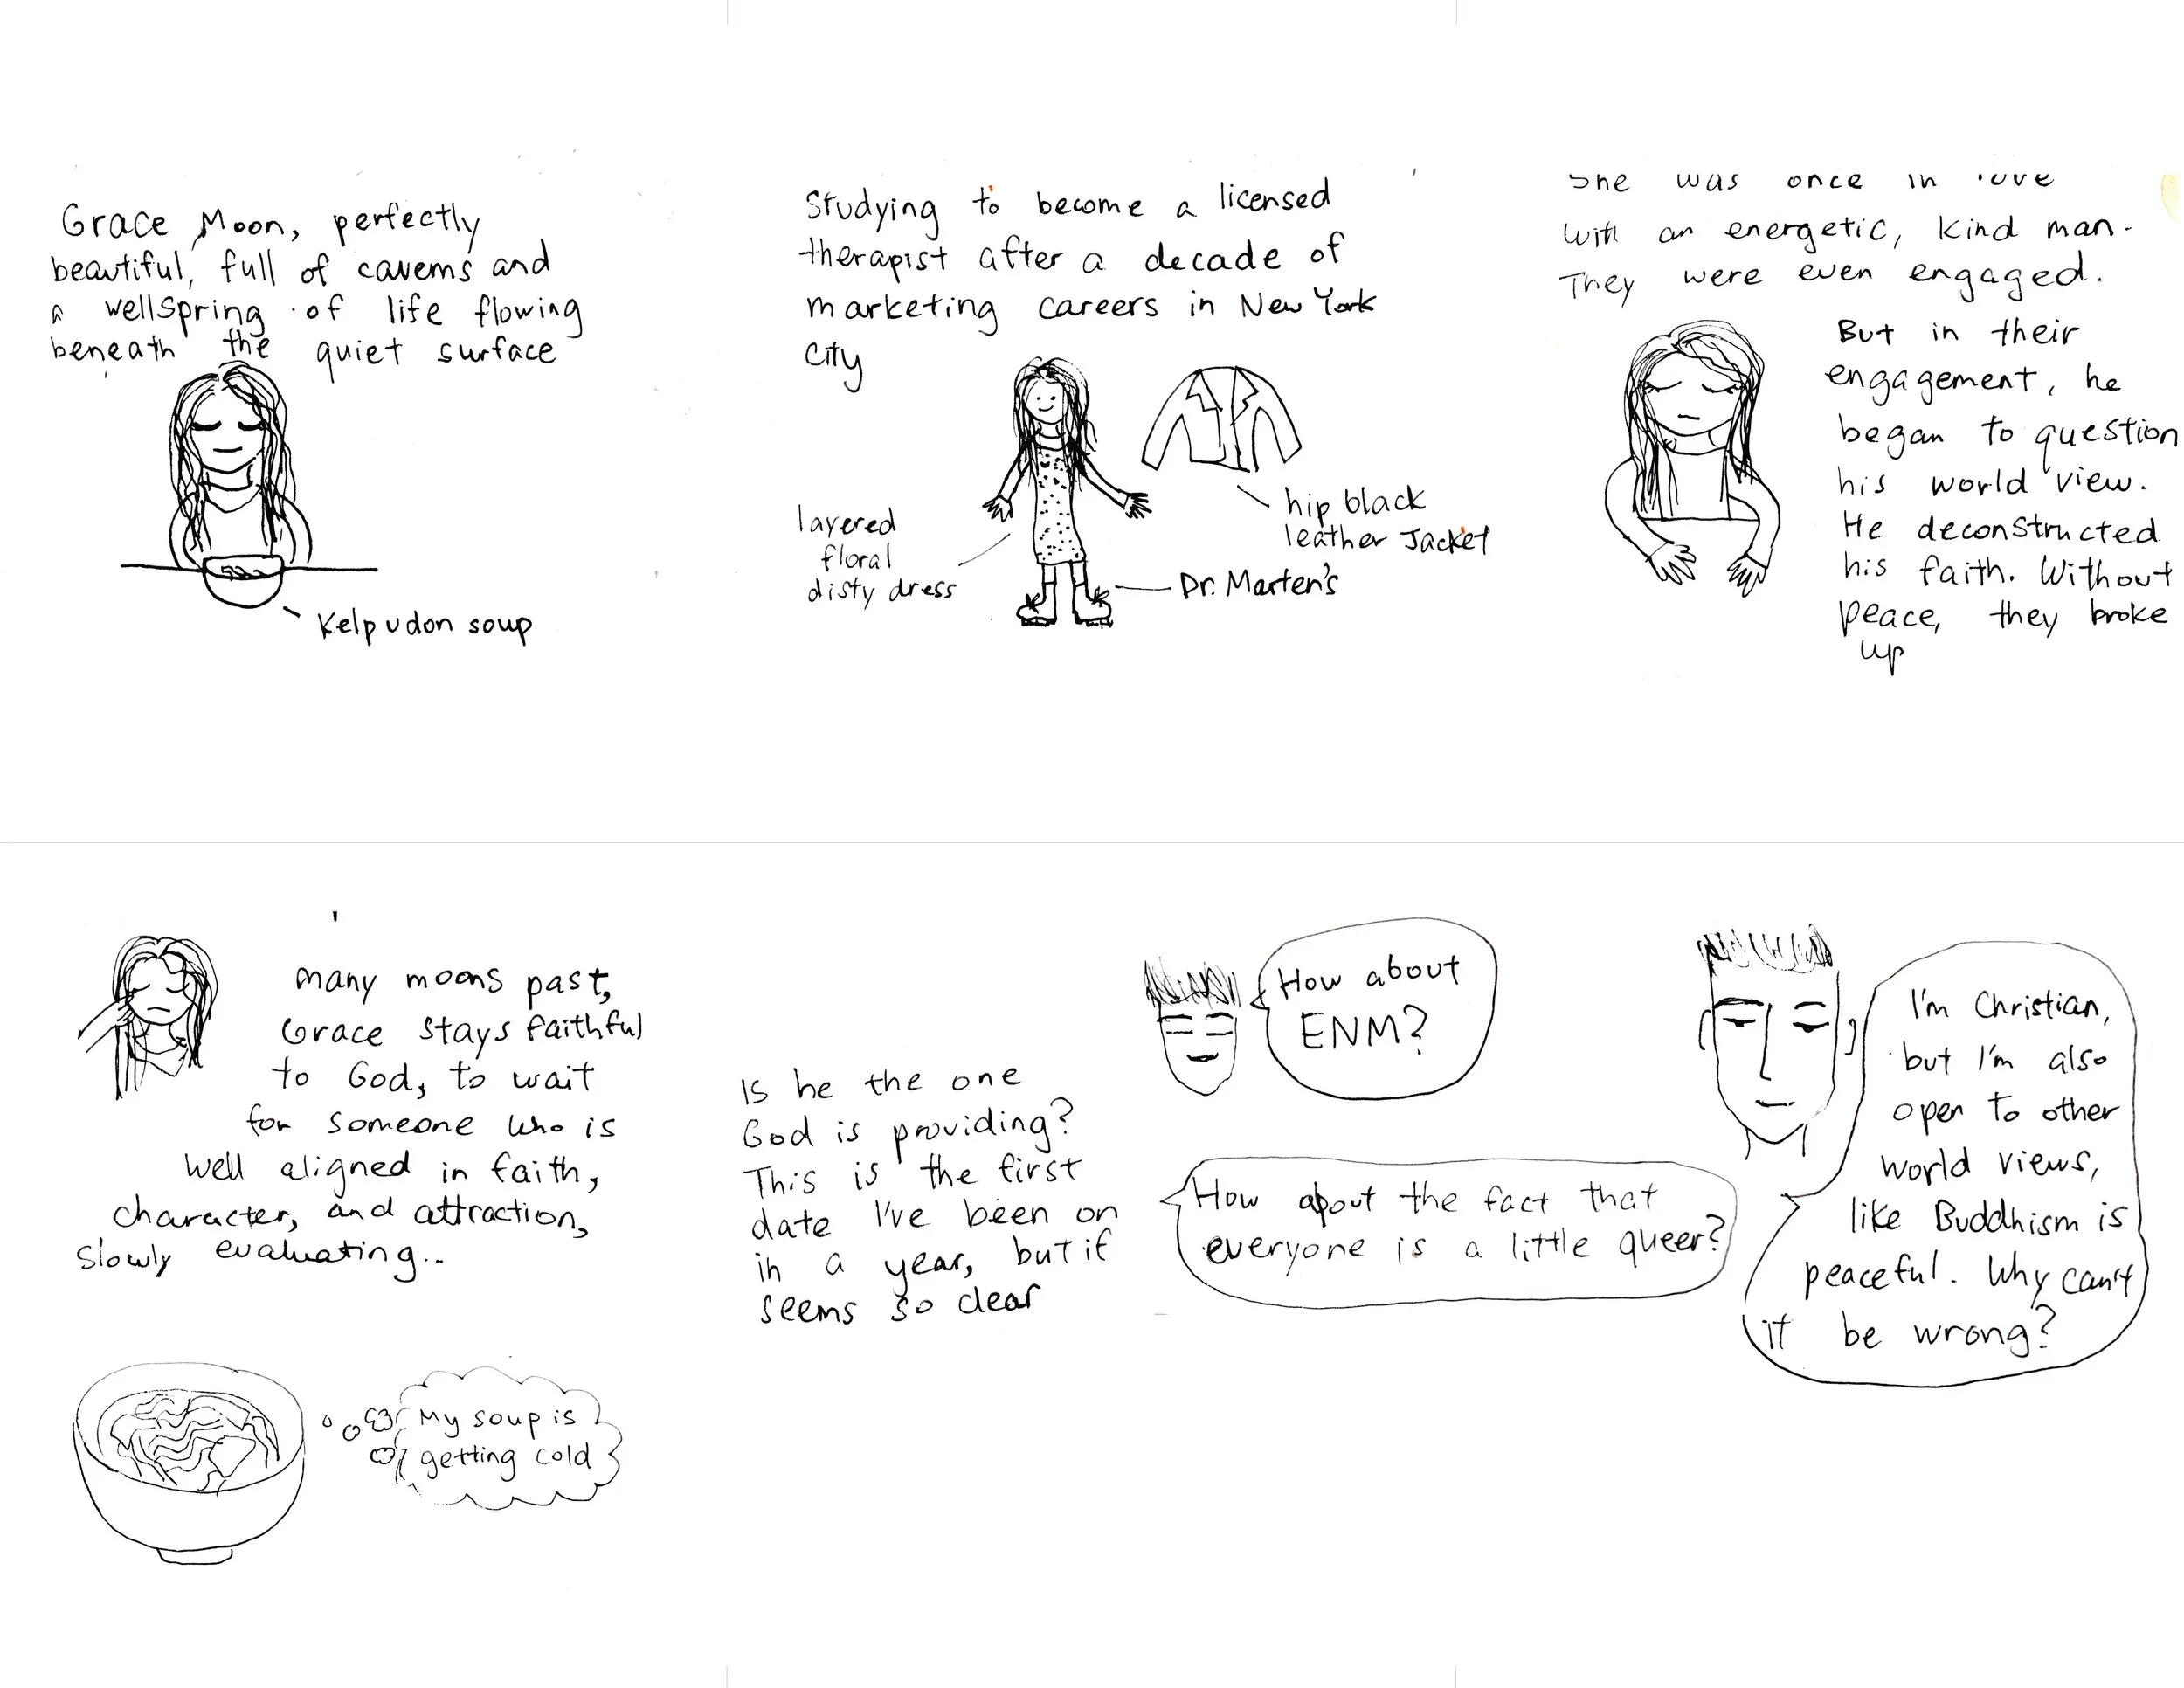 Grace Moon, perfectly
beautiful, full of caverns and
a wellspring of life flowing
beneath the quiet surface
Kelp udon soup
Studying to become a licensed
therapist after a decade of
marketing careers in New York
City
layered
floral
disty dress
hip black
leather Jacket
Dr. Marten's
She was once in love
with an energetic, kind man.
They were even engaged.
But in their
engagement, he
began to question
his world view.
He deconstructed
his faith. Without
peace, they broke
up
many moons past,
Grace stays faithful
to God, to wait
for someone who is
well aligned in faith,
character, and attraction,
slowly evaluating...
My soup is
getting cold
Is he the one
God is providing?
This is the first
date I've been on
in a year, but if
seems so clear
How about
ENM?
How about the fact that
everyone is a little queer?
I'm Christian,
but I'm also
open to other
world views,
like Buddhism is
peaceful. Why can't
it be wrong?